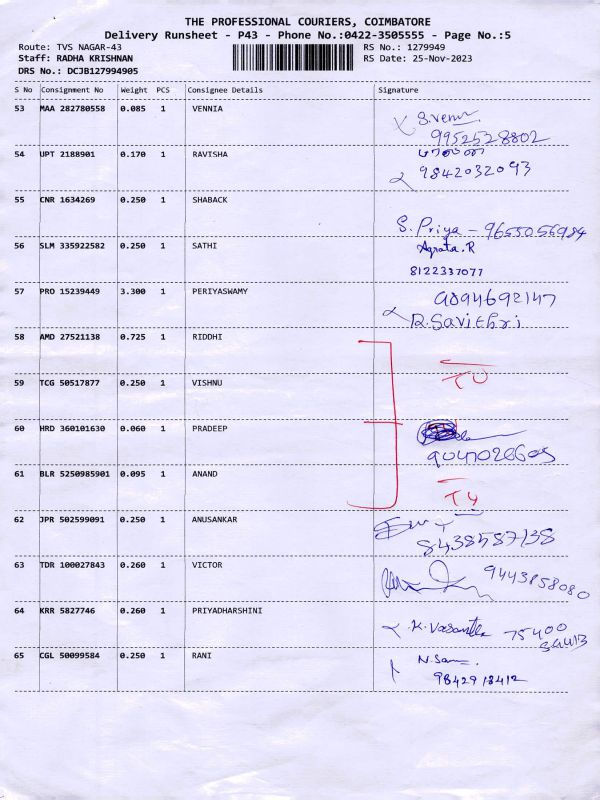 THE PROFESSIONAL COURIERS, COIMBATORE
Delivery Runsheet - P43 - Phone No.:0422-3505555 - Page No.:5
Route: TVS NAGAR-43
RS No.: 1279949
Staff: RADHA KRISHNAN
RS Date: 25-Nov-2023
DRS No.: DCJB127994905
S No Consignment No Weight PCS Consignee Details Signature
53 MAA 282780558 0.085 1 VENNIA
9952528802
54 UPT 2188901 0.170 1 RAVISHA
9842032093
55 CNR 1634269 0.250 1 SHABACK
S. Priya - 9655056984
56 SLM 335922582 0.250 1 SATHI
8122337077
57 PRO 15239449 3.300 1 PERIYASWAMY
9894692147
R.Savithri
58 AMD 27521138 0.725 1 RIDDHI
59 TCG 50517877 0.250 1 VISHNU
60 HRD 360101630 0.060 1 PRADEEP
61 BLR 5250985901 0.095 1 ANAND
62 JPR 502599091 0.250 1 ANUSANKAR
8438587138
63 TDR 100027843 0.260 1 VICTOR
9443858080
64 KRR 5827746 0.260 1 PRIYADHARSHINI
K. Vasantha 75400
65 CGL 50099584 0.250 1 RANI
9842918412